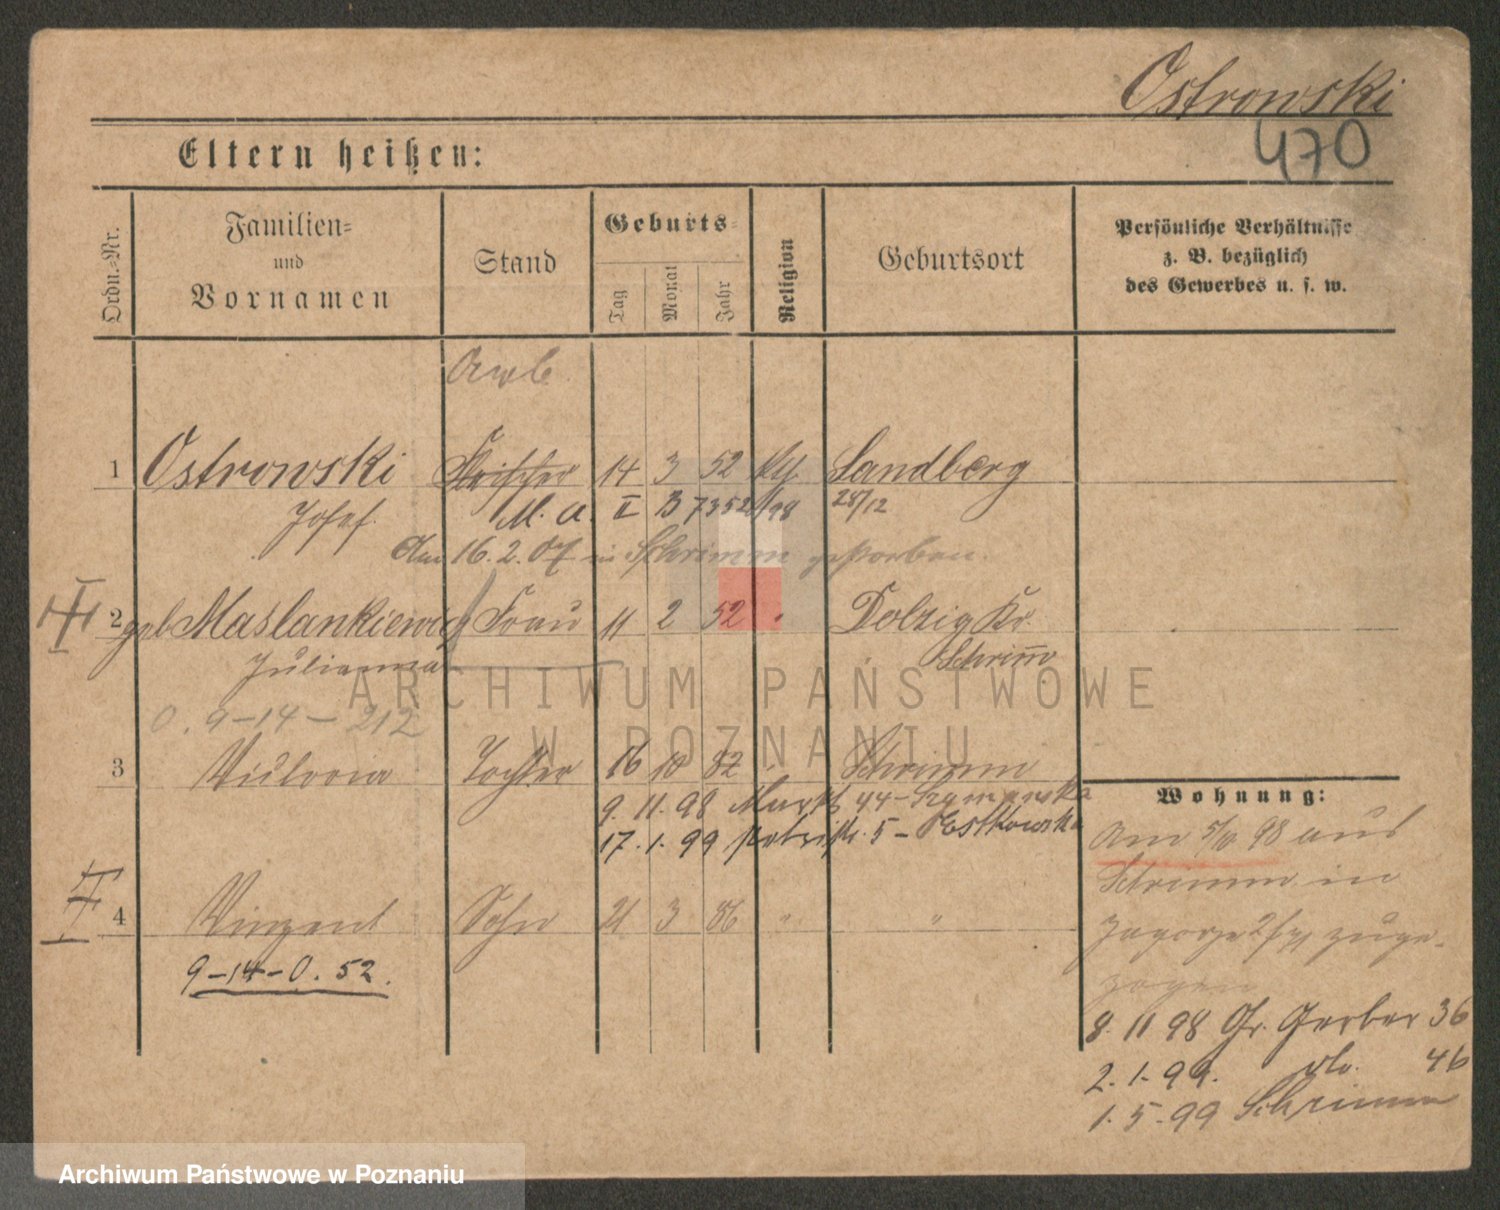 Ostrowski
470
Eltern heißen:
Ordn.-Nr.
Familien- und Vornamen
Stand
Geburts-
Tag
Monat
Jahr
Religion
Geburtsort
Persönliche Verhältnisse
z. B. bezüglich
des Gewerbes u. s. w.
1 Ostrowski 14 3 52 Sandberg
Josef. M. A. II B 7352/98 28/12
Am 16. 2. 07 in Schrimm gestorben.
2 geb Maslankiewicz Frau 11 2 52 " Dolzig Kr.
Julianna Schrimm
O. 9-14-212
3 Tochter 16 10 82 " Schrimm
9. 11. 98 Markt 44 - Szymanska
17. 1. 99 5 - Estkowska
4 Vinzent Sohn 21 3 86 " "
9-14-O. 52.
Wohnung:
Am 98 aus
Schrimm in
Zagorze zuge-
zogen
8. 11 98 Gr. Gerber 36
2. 1. 99. do. 46
1. 5. 99 Schrimm
ARCHIWUM PAŃSTWOWE
W POZNANIU
Archiwum Państwowe w Poznaniu